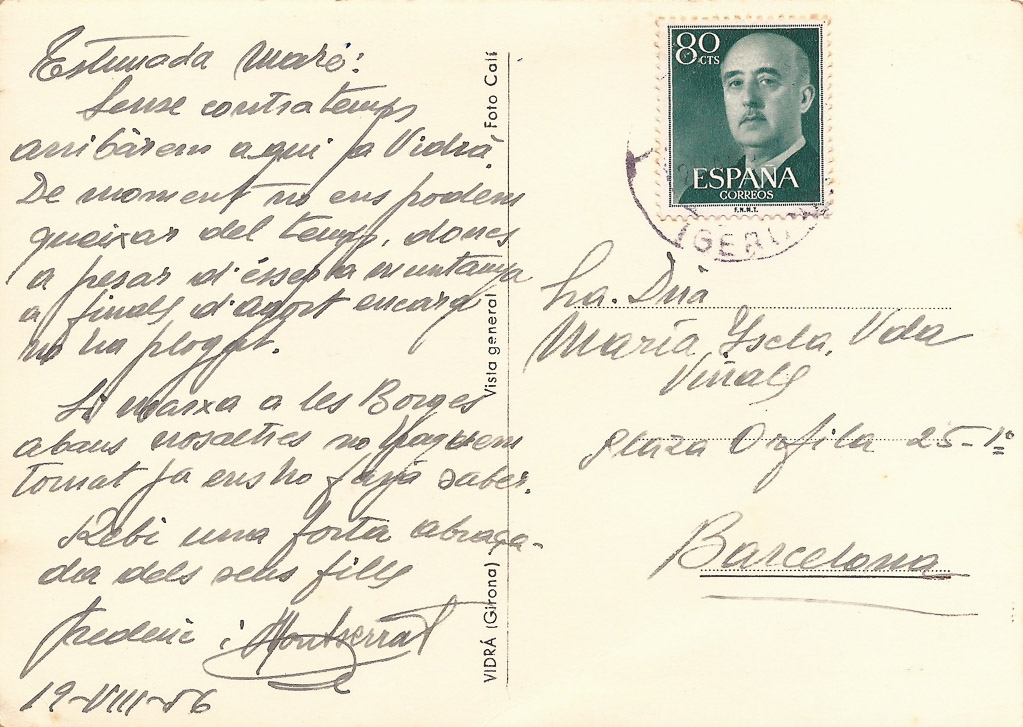 Estimada Maré:
Sense contratemps
arribàrem aquí a Vidrà.
De moment no ens podem
queixar del temps, doncs
a pesar d'ésser a muntanya
a finals d'agost encara
no ha ploggut.
Si marxa a les Borges
abans nosaltres no haguem
tornat ja ens ho farà saber.
Rebi una forta abraça-
da dels seus fills
Frederic i Montserrat
19-VIII-56
VIDRÁ (Girona) Vista general Foto Calí
80 CTS
ESPAÑA
CORREOS
F.N.M.T.
Sra. Dña
María Yscla, Vda
Viñals
Plaza Orfila 25-1º
Barcelona